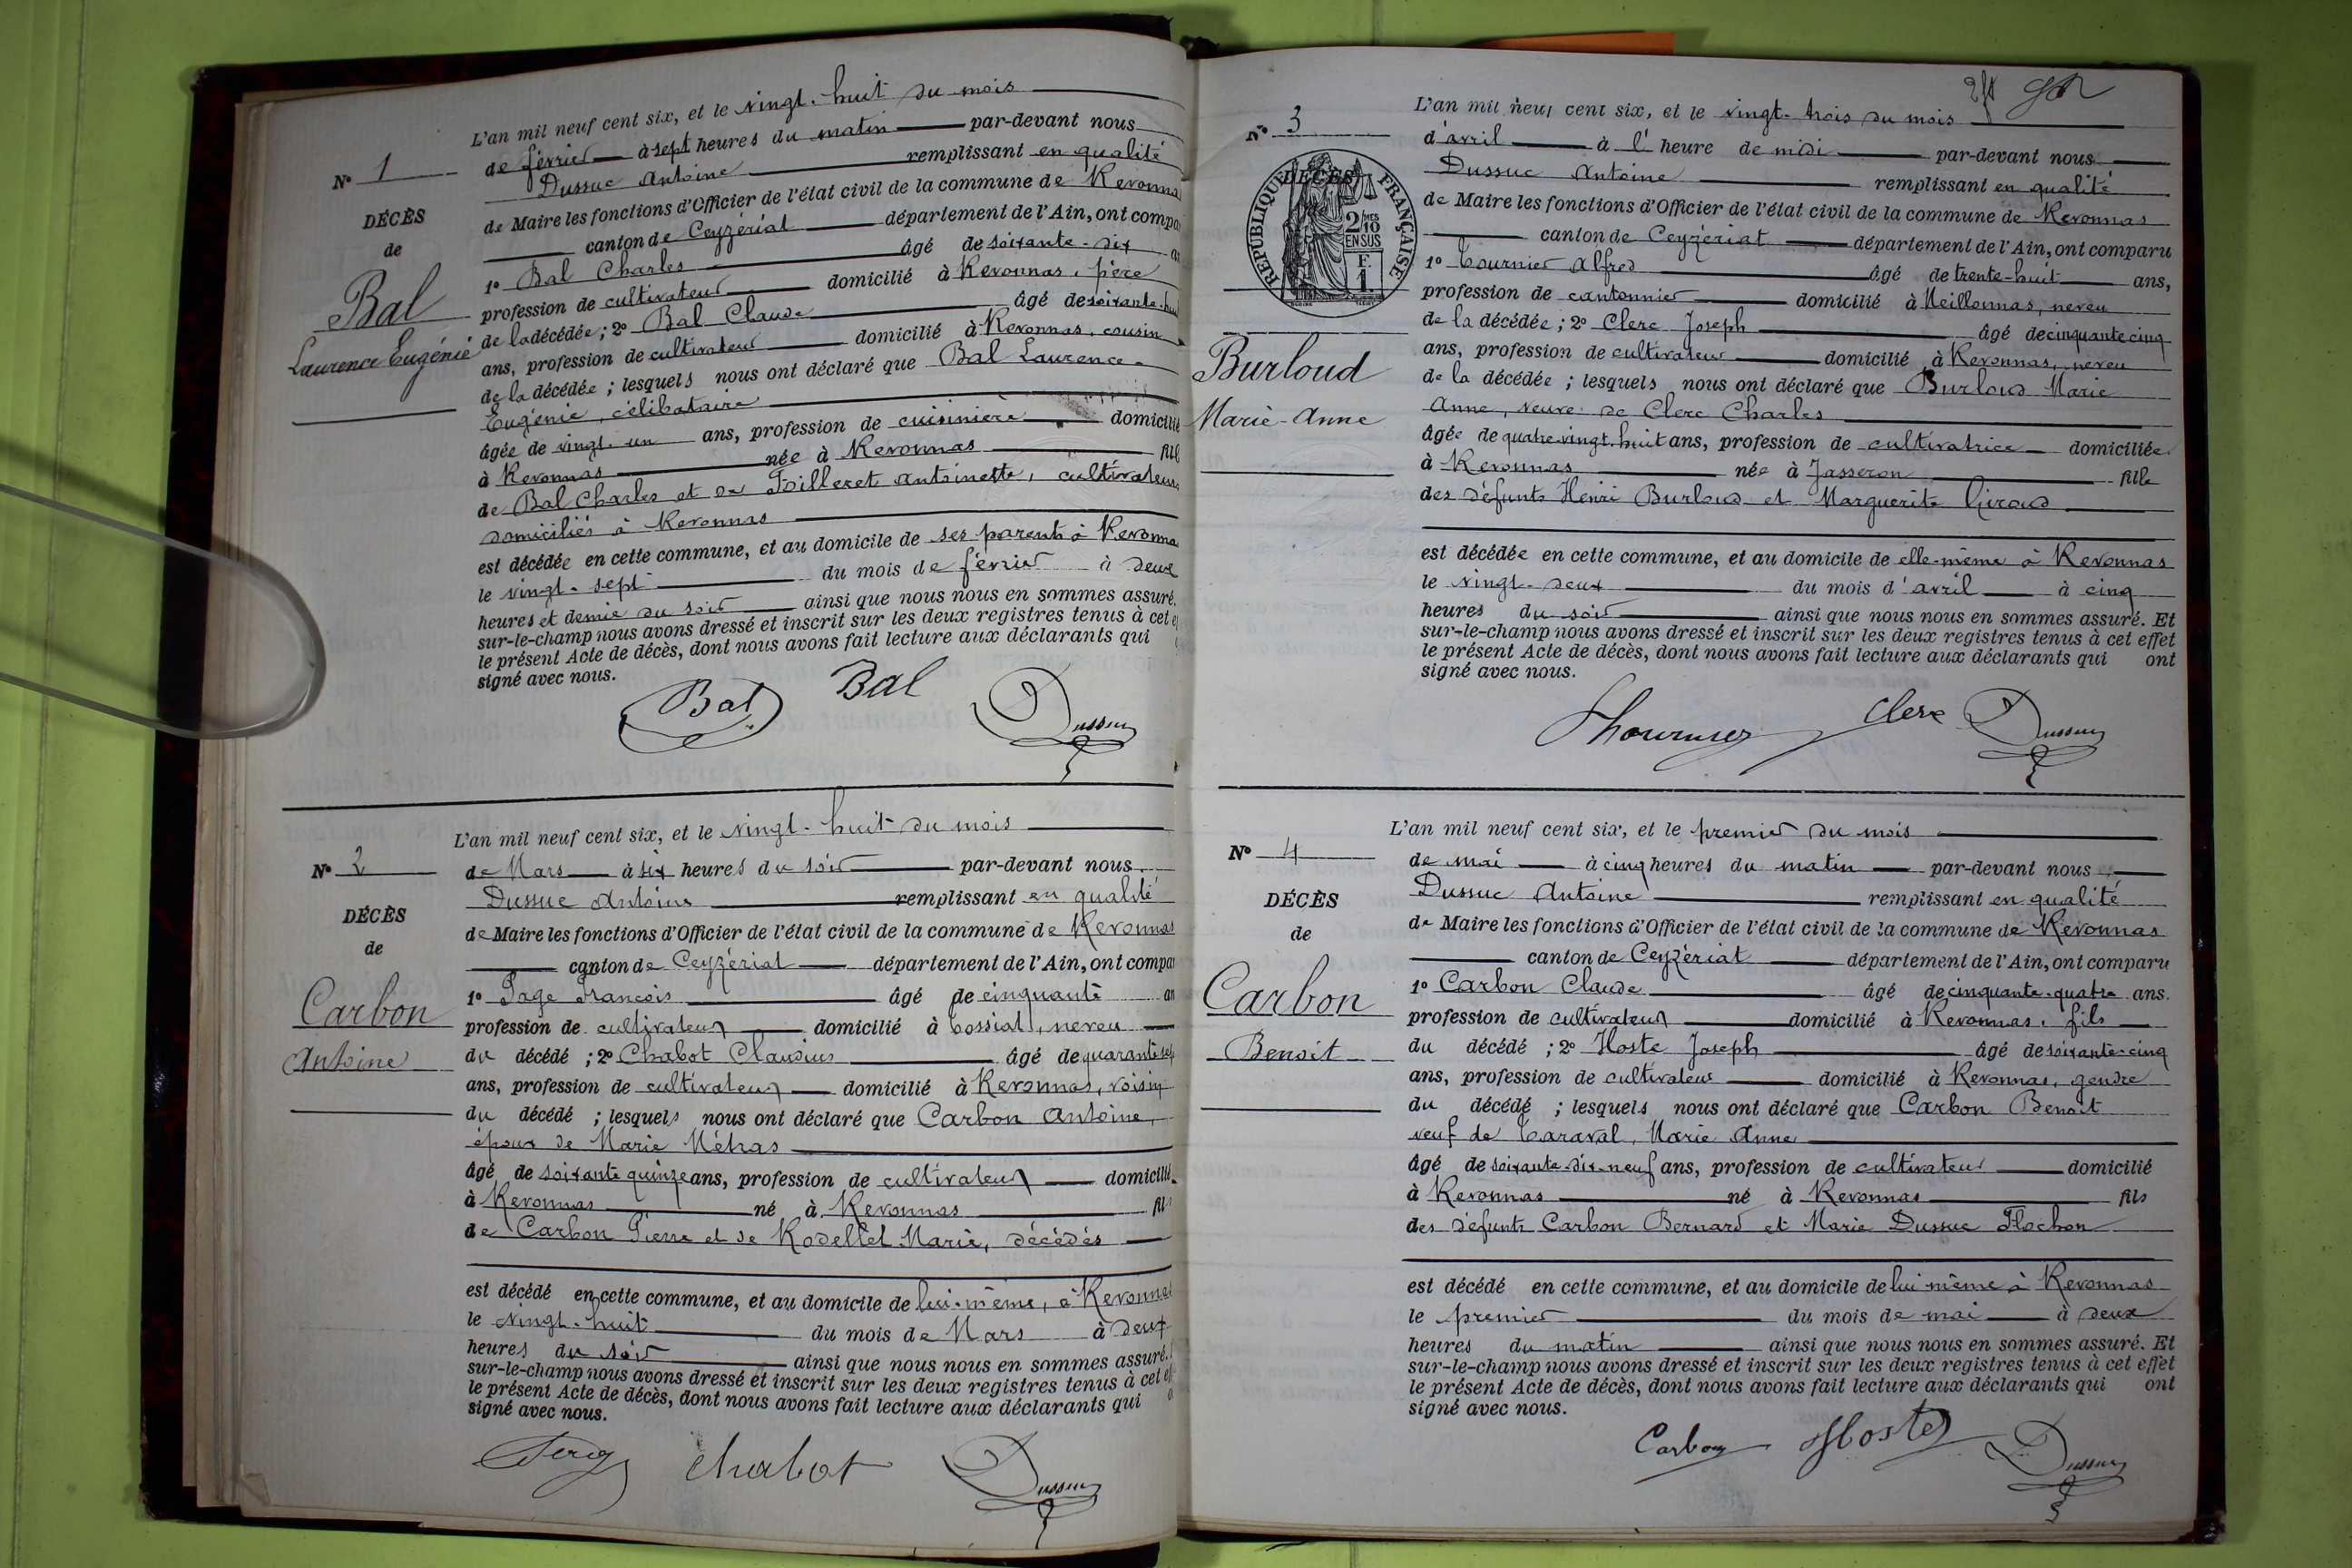 L'an mil neuf cent six, et le vingt-huit du mois
N° 1
de février à sept heures du matin par-devant nous
Dussuc Antoine remplissant en qualité
DÉCÈS
de Maire les fonctions d'Officier de l'état civil de la commune de Revonnas
de
canton de Ceyzériat département de l'Ain, ont compa
Bal
1° Bal Charles âgé de soixante-dix
profession de cultivateur domicilié à Revonnas, père
Laurence Eugénie
de la décédée ; 2° Bal Claude âgé de soixante-
ans, profession de cultivateur domicilié à Revonnas, cousin
de la décédée ; lesquels nous ont déclaré que Bal Laurence
Eugénie, célibataire
âgée de vingt-un ans, profession de cuisinière domicilié
à Revonnas née à Revonnas fill
de Bal Charles et de Antoinette, cultivateurs
domiciliés à Revonnas
est décédée en cette commune, et au domicile de ses parents à Revonna
le vingt-sept du mois de février à deux
heures et demie du soir ainsi que nous nous en sommes assuré.
sur-le-champ nous avons dressé et inscrit sur les deux registres tenus à cet
le présent Acte de décès, dont nous avons fait lecture aux déclarants qui
signé avec nous.
Bal Bal Dussuc
L'an mil neuf cent six, et le vingt-huit du mois
N° 2
de Mars à six heures du soir par-devant nous
Dussuc Antoine remplissant en qualité
DÉCÈS
de Maire les fonctions d'Officier de l'état civil de la commune de Revonnas
de
canton de Ceyzériat département de l'Ain, ont compa
Carbon
1° François âgé de cinquante an
profession de cultivateur domicilié à Tossiat, neveu
Antoine
du décédé ; 2° Chabot Claudius âgé de quarante sep
ans, profession de cultivateur domicilié à Revonnas, voisin
du décédé ; lesquels nous ont déclaré que Carbon Antoine,
époux de Marie Méhas
âgé de soixante quinze ans, profession de cultivateur domicilié
à Revonnas né à Revonnas fils
de Carbon Pierre et de Rodellet Marie, décédés
est décédé en cette commune, et au domicile de lui-même, à Revonnas
le vingt-huit du mois de Mars à deux
heures du soir ainsi que nous nous en sommes assuré.
sur-le-champ nous avons dressé et inscrit sur les deux registres tenus à cet
le présent Acte de décès, dont nous avons fait lecture aux déclarants qui
signé avec nous.
Chabot Dussuc
L'an mil neuf cent six, et le vingt-trois du mois
N° 3
d'avril à l'heure de midi par-devant nous
RÉPUBLIQUE FRANÇAISE
DÉCÈS
2/10 MES
EN SUS
F.
1.
Dussuc Antoine remplissant en qualité
de Maire les fonctions d'Officier de l'état civil de la commune de Revonnas
canton de Ceyzériat département de l'Ain, ont comparu
1° Tournier Alfred âgé de trente-huit ans,
profession de cantonnier domicilié à Meillonnas, neveu
de la décédée ; 2° Clerc Joseph âgé de cinquante cinq
Burloud
ans, profession de cultivateur domicilié à Revonnas, neveu
de la décédée ; lesquels nous ont déclaré que Burloud Marie
Marie-Anne
Anne, veuve de Clerc Charles
âgée de quatre-vingt-huit ans, profession de cultivatrice domiciliée
à Revonnas née à Jasseron fille
des défunts Henri Burloud et Marguerite Giroud
est décédée en cette commune, et au domicile de elle-même à Revonnas
le vingt-deux du mois d'avril à cinq
heures du soir ainsi que nous nous en sommes assuré. Et
sur-le-champ nous avons dressé et inscrit sur les deux registres tenus à cet effet
le présent Acte de décès, dont nous avons fait lecture aux déclarants qui ont
signé avec nous.
Thournier Clerc Dussuc
L'an mil neuf cent six, et le premier du mois
N° 4
de mai à cinq heures du matin par-devant nous
Dussuc Antoine remplissant en qualité
DÉCÈS
de Maire les fonctions d'Officier de l'état civil de la commune de Revonnas
de
canton de Ceyzériat département de l'Ain, ont comparu
Carbon
1° Carbon Claude âgé de cinquante-quatre ans.
profession de cultivateur domicilié à Revonnas, fils
Benoit
du décédé ; 2° Hoste Joseph âgé de soixante-cinq
ans, profession de cultivateur domicilié à Revonnas, gendre
du décédé ; lesquels nous ont déclaré que Carbon Benoit
veuf de Taraval, Marie Anne
âgé de soixante-dix-neuf ans, profession de cultivateur domicilié
à Revonnas né à Revonnas fils
des défunts Carbon Bernard et Marie Dussuc Flochon
est décédé en cette commune, et au domicile de lui même à Revonnas
le premier du mois de mai à deux
heures du matin ainsi que nous nous en sommes assuré. Et
sur-le-champ nous avons dressé et inscrit sur les deux registres tenus à cet effet
le présent Acte de décès, dont nous avons fait lecture aux déclarants qui ont
signé avec nous.
Carbon Hoste Dussuc